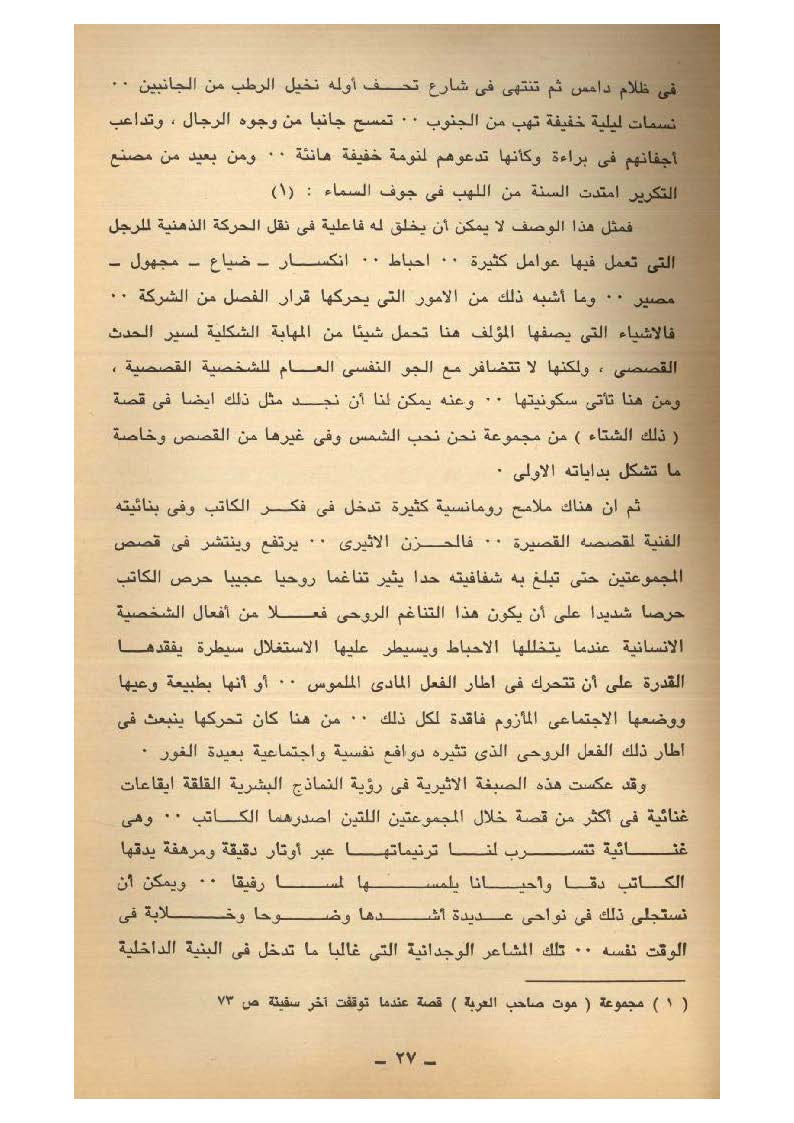 فى ظلام دامس ثم تنتهى فى شارع تحـــف أوله نخيل الرطب من الجانبين ٠٠
نسمات ليلية خفيفة تهب من الجنوب ٠٠ تمسح جانبا من وجوه الرجال ، وتداعب
أجفانهم فى براءة وكأنها تدعوهم لنومة خفيفة هانئة ٠٠ ومن بعيد من مصنع
التكرير امتدت السنة من اللهب فى جوف السماء : (١)
فمثل هذا الوصف لا يمكن أن يخلق له فاعلية فى نقل الحركة الذهنية للرجل
التى تعمل فيها عوامل كثيرة ٠٠ احباط ٠٠ انكســـار ــ ضياع ــ مجهول ــ
مصير ٠٠ وما أشبه ذلك من الامور التى يحركها قرار الفصل من الشركة ٠٠
فالاشياء التى يصفها المؤلف هنا تحمل شيئا من المهابة الشكلية لسير الحدث
القصصى ، ولكنها لا تتضافر مع الجو النفسى العـــام للشخصية القصصية ،
ومن هنا تأتى سكونيتها ٠٠ وعنه يمكن لنا أن نجـــد مثل ذلك ايضا فى قصة
( ذلك الشتاء ) من مجموعة نحن نحب الشمس وفى غيرها من القصص وخاصة
ما تشكل بداياته الاولى ٠
ثم ان هناك ملامح رومانسية كثيرة تدخل فى فكـــر الكاتب وفى بنائيته
الفنية لقصصه القصيرة ٠٠ فالحـــزن الاثيرى ٠٠ يرتفع وينتشر فى قصص
المجموعتين حتى تبلغ به شفافيته حدا يثير تناغما روحيا عجيبا حرص الكاتب
حرصا شديدا على أن يكون هذا التناغم الروحى فعـــلا من أفعال الشخصية
الانسانية عندما يتخللها الاحباط ويسيطر عليها الاستغلال سيطرة يفقدهـــا
القدرة على أن تتحرك فى اطار الفعل المادى الملموس ٠٠ أو أنها بطبيعة وعيها
ووضعها الاجتماعى المأزوم فاقدة لكل ذلك ٠٠ من هنا كان تحركها ينبعث فى
اطار ذلك الفعل الروحى الذى تثيره دوافع نفسية واجتماعية بعيدة الغور ٠
وقد عكست هذه الصبغة الاثيرية فى رؤية النماذج البشرية القلقة ايقاعات
غنائية فى أكثر من قصة خلال المجموعتين اللتين اصدرهما الكـــاتب ٠٠ وهى
غنـــائية تتســـرب لنـــا ترنيماتهـــا عبر أوتار دقيقة ومرهفة يدقها
الكـــاتب دقـــا وأحيـــانا يلمســـها لمســـا رفيقا ٠٠ ويمكن أن
نستجلى ذلك فى نواحى عـــديدة أشـــدها وضـــوحا وخـــلابة فى
الوقت نفسه ٠٠ تلك المشاعر الوجدانية التى غالبا ما تدخل فى البنية الداخلية
( ١ ) مجموعة ( موت صاحب العربة ) قصة عندما توقفت آخر سفينة ص ٧٣
ــ ٢٧ ــ